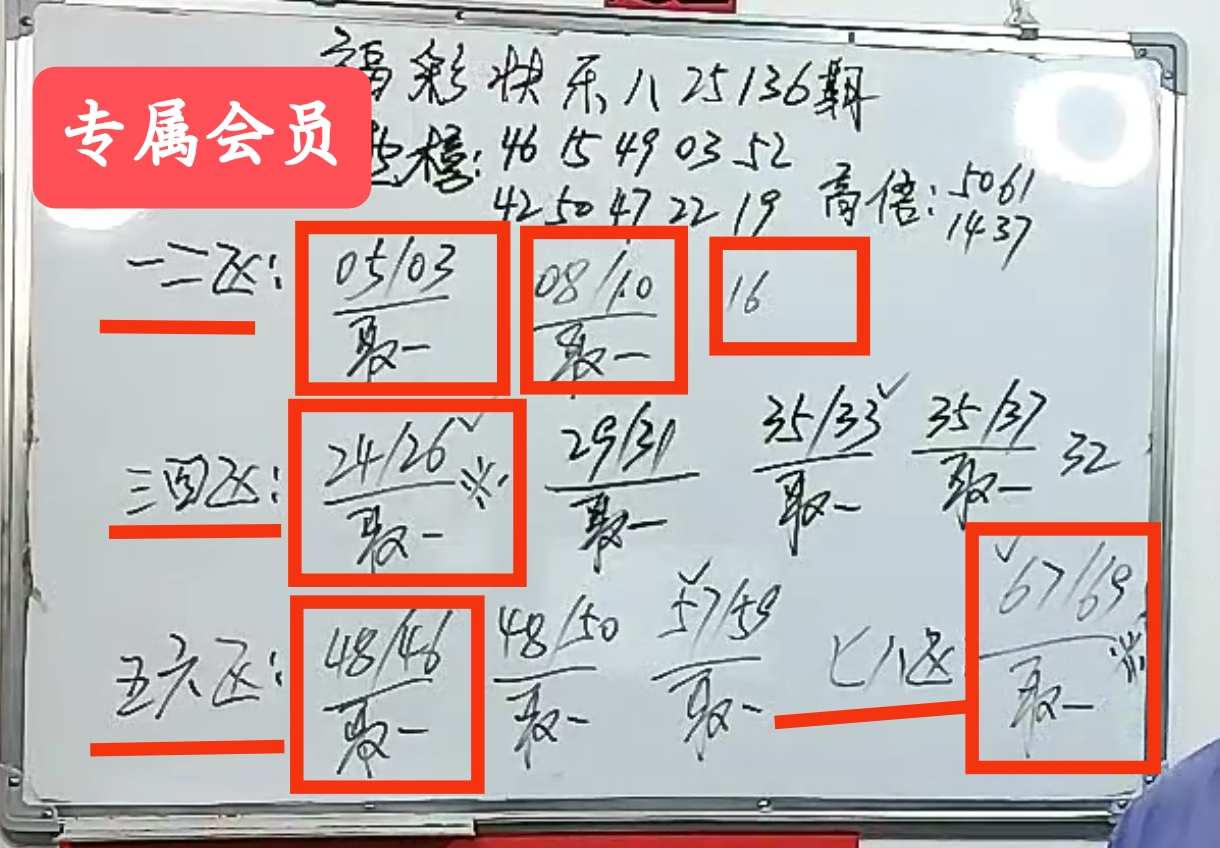 福彩快乐八25136期
专属会员
46 15 49 03 52
42 50 47 22 19
高倍: 5061
1437
一二区: 05/03 08/10 16
取一 取一
三四区: 24/26 ※ 29/31 35/33 35/37 32
取一 取一 取一 取一
五六区: 48/46 48/50 57/59 七八区 67/69 ※
取一 取一 取一 取一